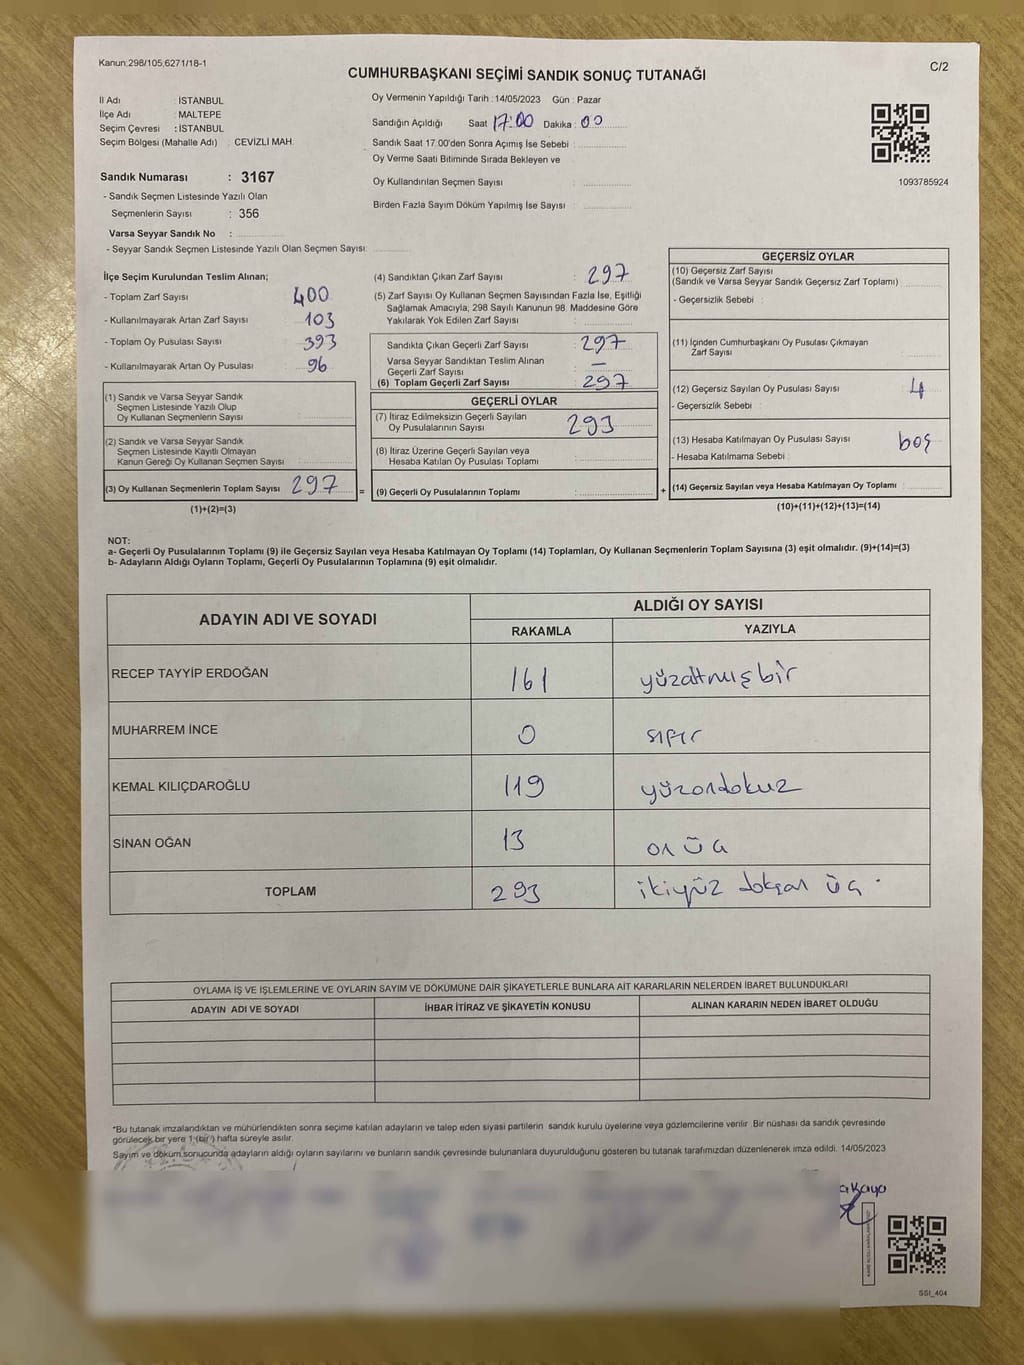 Kanun;298/105,6271/18-1
C/2
CUMHURBAŞKANI SEÇİMİ SANDIK SONUÇ TUTANAĞI
İl Adı : İSTANBUL
İlçe Adı : MALTEPE
Seçim Çevresi : İSTANBUL
Seçim Bölgesi (Mahalle Adı) : CEVİZLİ MAH.
Sandık Numarası : 3167
- Sandık Seçmen Listesinde Yazılı Olan
Seçmenlerin Sayısı : 356
Varsa Seyyar Sandık No :
- Seyyar Sandık Seçmen Listesinde Yazılı Olan Seçmen Sayısı:
Oy Vermenin Yapıldığı Tarih : 14/05/2023 Gün : Pazar
Sandığın Açıldığı Saat 17:00 Dakika : 00
Sandık Saat 17.00'den Sonra Açımış İse Sebebi :
Oy Verme Saati Bitiminde Sırada Bekleyen ve
Oy Kullandırılan Seçmen Sayısı :
Birden Fazla Sayım Döküm Yapılmış İse Sayısı :
1093785924
İlçe Seçim Kurulundan Teslim Alınan;
- Toplam Zarf Sayısı : 400
- Kullanılmayarak Artan Zarf Sayısı : 103
- Toplam Oy Pusulası Sayısı : 393
- Kullanılmayarak Artan Oy Pusulası : 96
(1) Sandık ve Varsa Seyyar Sandık
Seçmen Listesinde Yazılı Olup
Oy Kullanan Seçmenlerin Sayısı :
(2) Sandık ve Varsa Seyyar Sandık
Seçmen Listesinde Kayıtlı Olmayan
Kanun Gereği Oy Kullanan Seçmen Sayısı :
(3) Oy Kullanan Seçmenlerin Toplam Sayısı 297
(1)+(2)=(3)
(4) Sandıktan Çıkan Zarf Sayısı : 297
(5) Zarf Sayısı Oy Kullanan Seçmen Sayısından Fazla İse, Eşitliği
Sağlamak Amacıyla, 298 Sayılı Kanunun 98. Maddesine Göre
Yakılarak Yok Edilen Zarf Sayısı :
Sandıkta Çıkan Geçerli Zarf Sayısı : 297
Varsa Seyyar Sandıktan Teslim Alınan
Geçerli Zarf Sayısı : —
(6) Toplam Geçerli Zarf Sayısı : 297
GEÇERLİ OYLAR
(7) İtiraz Edilmeksizin Geçerli Sayılan
Oy Pusulalarının Sayısı : 293
(8) İtiraz Üzerine Geçerli Sayılan veya
Hesaba Katılan Oy Pusulası Toplamı :
= (9) Geçerli Oy Pusulalarının Toplamı :
GEÇERSİZ OYLAR
(10) Geçersiz Zarf Sayısı
(Sandık ve Varsa Seyyar Sandık Geçersiz Zarf Toplamı)
- Geçersizlik Sebebi :
(11) İçinden Cumhurbaşkanı Oy Pusulası Çıkmayan
Zarf Sayısı :
(12) Geçersiz Sayılan Oy Pusulası Sayısı : 4
- Geçersizlik Sebebi :
(13) Hesaba Katılmayan Oy Pusulası Sayısı : boş
- Hesaba Katılmama Sebebi :
+ (14) Geçersiz Sayılan veya Hesaba Katılmayan Oy Toplamı :
(10)+(11)+(12)+(13)=(14)
NOT:
a- Geçerli Oy Pusulalarının Toplamı (9) ile Geçersiz Sayılan veya Hesaba Katılmayan Oy Toplamı (14) Toplamları, Oy Kullanan Seçmenlerin Toplam Sayısına (3) eşit olmalıdır. (9)+(14)=(3)
b- Adayların Aldığı Oyların Toplamı, Geçerli Oy Pusulalarının Toplamına (9) eşit olmalıdır.
ADAYIN ADI VE SOYADI ALDIĞI OY SAYISI
RAKAMLA YAZIYLA
RECEP TAYYİP ERDOĞAN 161 yüzaltmışbir
MUHARREM İNCE 0 sıfır
KEMAL KILIÇDAROĞLU 119 yüzondokuz
SİNAN OĞAN 13 on üç
TOPLAM 293 ikiyüz doksan üç
OYLAMA İŞ VE İŞLEMLERİNE VE OYLARIN SAYIM VE DÖKÜMÜNE DAİR ŞİKAYETLERLE BUNLARA AİT KARARLARIN NELERDEN İBARET BULUNDUKLARI
ADAYIN ADI VE SOYADI İHBAR İTİRAZ VE ŞİKAYETİN KONUSU ALINAN KARARIN NEDEN İBARET OLDUĞU
*Bu tutanak imzalandıktan ve mühürlendikten sonra seçime katılan adayların ve talep eden siyasi partilerin sandık kurulu üyelerine veya gözlemcilerine verilir. Bir nüshası da sandık çevresinde
görülecek bir yere 1 (bir) hafta süreyle asılır.
Sayım ve döküm sonucunda adayların aldığı oyların sayılarını ve bunların sandık çevresinde bulunanlara duyurulduğunu gösteren bu tutanak tarafımızdan düzenlenerek imza edildi. 14/05/2023
SSI_404